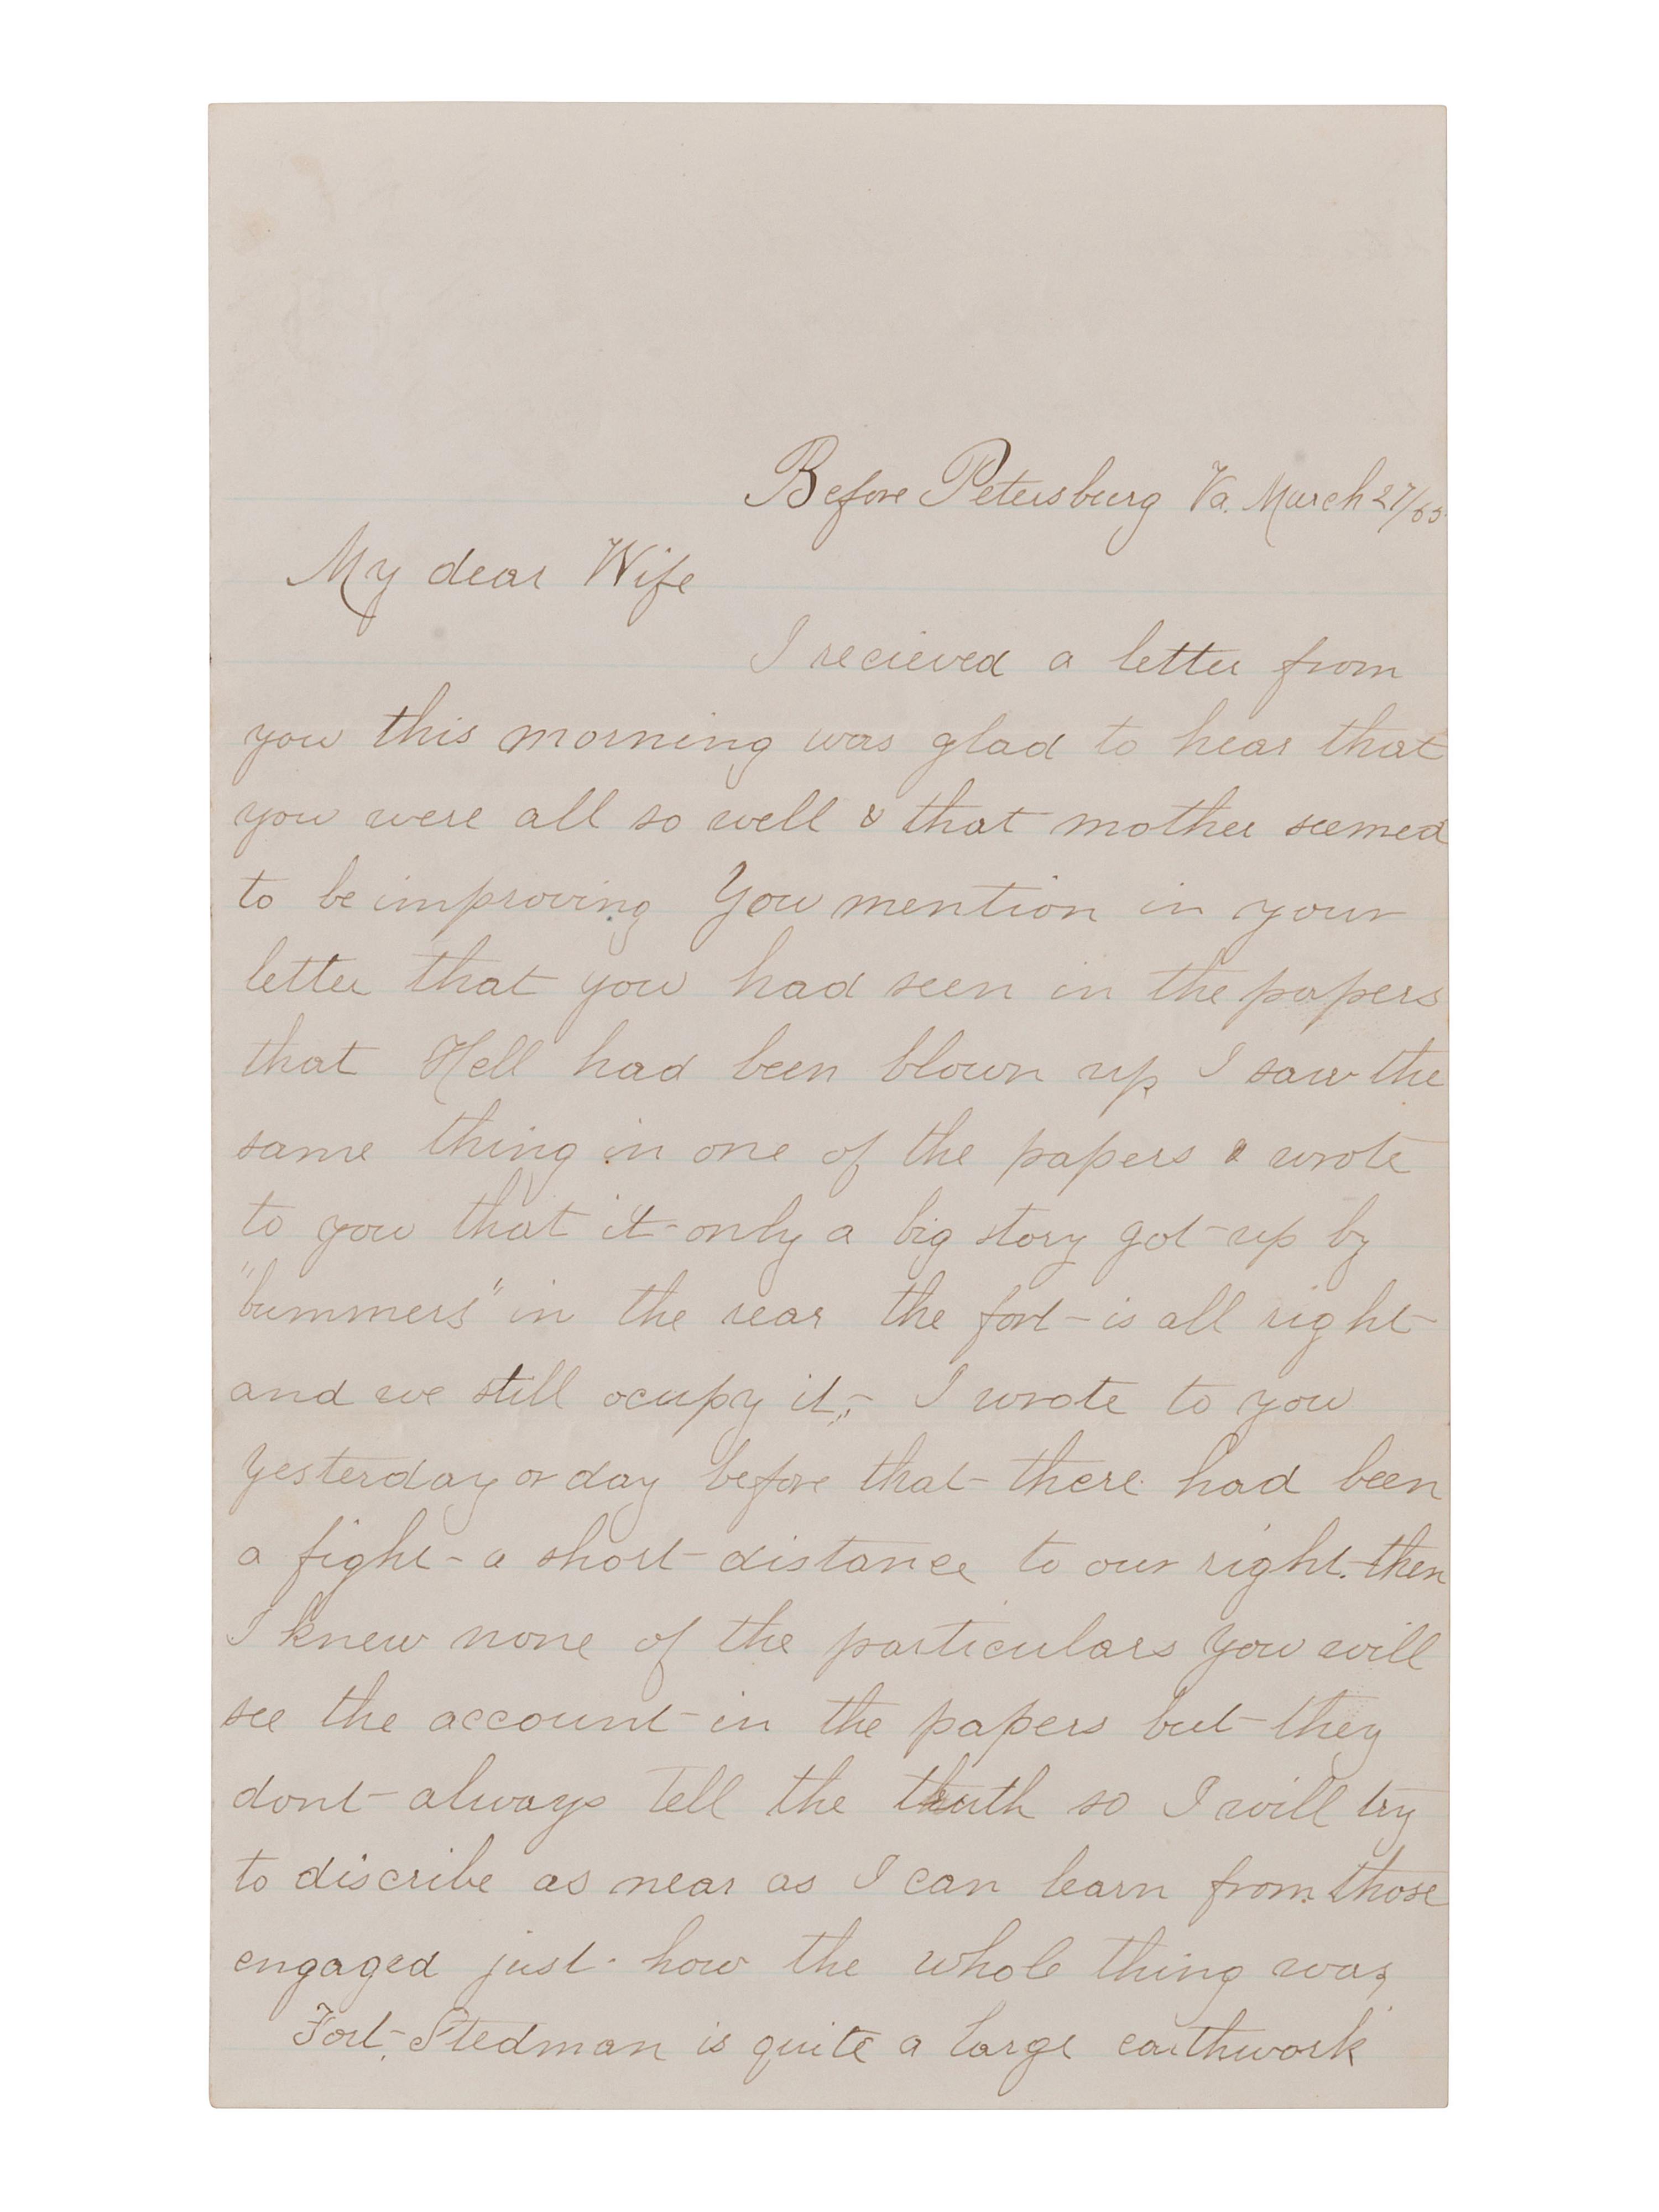 Before Petersburg Va. March 27/65
My dear Wife
I recieved a letter from
you this morning was glad to hear that
you were all so well & that mother seemed
to be improving You mention in your
letter that you had seen in the papers
that Hell had been blown up I saw the
same thing in one of the papers & wrote
to you that it only a big story got up by
"bummers" in the rear the fort is all right
and we still ocupy it,- I wrote to you
yesterday or day before that there had been
a fight a short distance to our right. then
I knew none of the particulars You will
see the account in the papers but they
dont always tell the truth so I will try
to discribe as near as I can learn from those
engaged just how the whole thing was,
Fort Stedman is quite a large earthwork